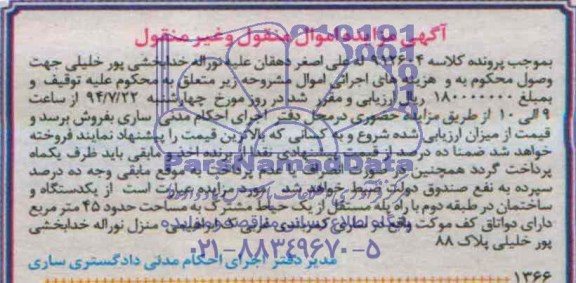 آگهی مزایده اموال منقول وغیر منقول
بموجب پرونده کلاسه ۹۱۳۶۰۴ له علی اصغر دهقان علیه نوراله خدابخشی پور خلیلی جهت
وصول محکوم به و هزینه های اجرائی اموال مشروحه زیر متعلق به محکوم علیه توقیف و
بمبلغ ۱۸۰۰۰۰۰۰۰ ریال ارزیابی و مقرر شد در روز مورخ چهارشنبه ۹۴/۷/۲۲ از ساعت
۹ الی ۱۰ از طریق مزایده حضوری درمحل دفتر اجرای احکام مدنی ساری بفروش برسد و
قیمت از میزان ارزیابی شده شروع و به کسانی که بالاترین قیمت را پیشنهاد نمایند فروخته
خواهد شد ضمنا ده درصد از قیمت پیشنهادی نقدا از برنده اخذ و مابقی باید ظرف یکماه
پرداخت گردد همچنین در صورت انصراف یا عدم پرداخت به موقع مابقی وجه ده درصد
سپرده به نفع صندوق دولت ضبط خواهد شد مورد مزایده عبارت است از یکدستگاه
ساختمان در طبقه دوم با راه پله مستقل از یک حیاط مشترک به مساحت حدود ۴۵ متر مربع
دارای دواتاق کف موکت واقع در ساری کمربندی غربی منزل نوراله خدابخشی
پور خلیلی پلاک ۸۸
۰۲۱-۸۸۳۴۹۶۷۰-۵
مدیر دفتر اجرای احکام مدنی دادگستری ساری
۱۳۶۶
ParsNamadData